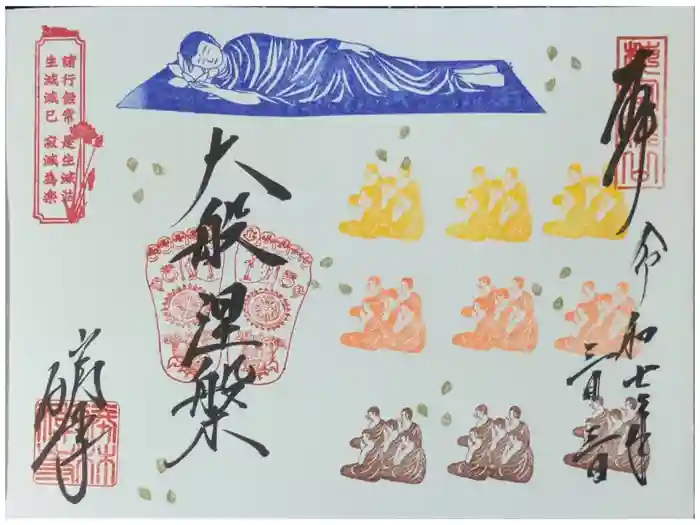 奉拝
令和七年
三月三日
大般涅槃
諸行無常 是生滅法
生滅滅已 寂滅為楽